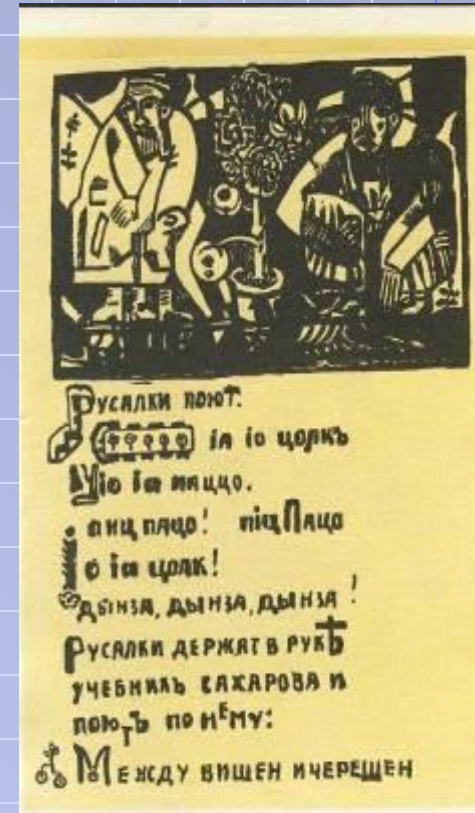 Русалки поют:
іа іо цолкъ
іо іа паццо.
пиц пацо! піц Пацо
о іа цолк!
Дынза, дынза, дынза!
Русалки держат в рукѣ
учебникъ Сахарова и
поютъ по нему:
Между вишен и черешен